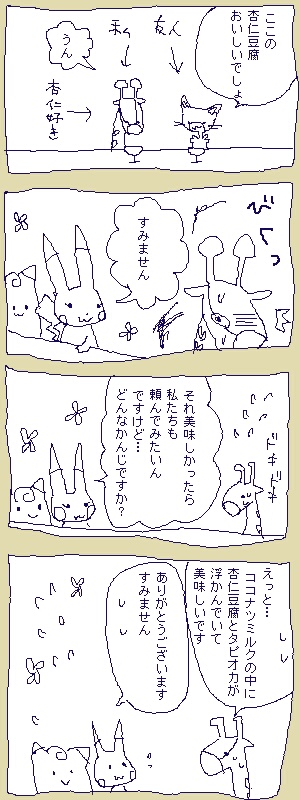 ここの
杏仁豆腐
おいしいでしょ
友人
私
うん
杏仁好き
びくっ
すみません
ドキドキ
それ美味しかったら
私たちも
頼んでみたいん
ですけど…
どんなかんじですか？
えっと…
ココナツミルクの中に
杏仁豆腐とタピオカが
浮かんでいて
美味しいです
ありがとうございます
すみません